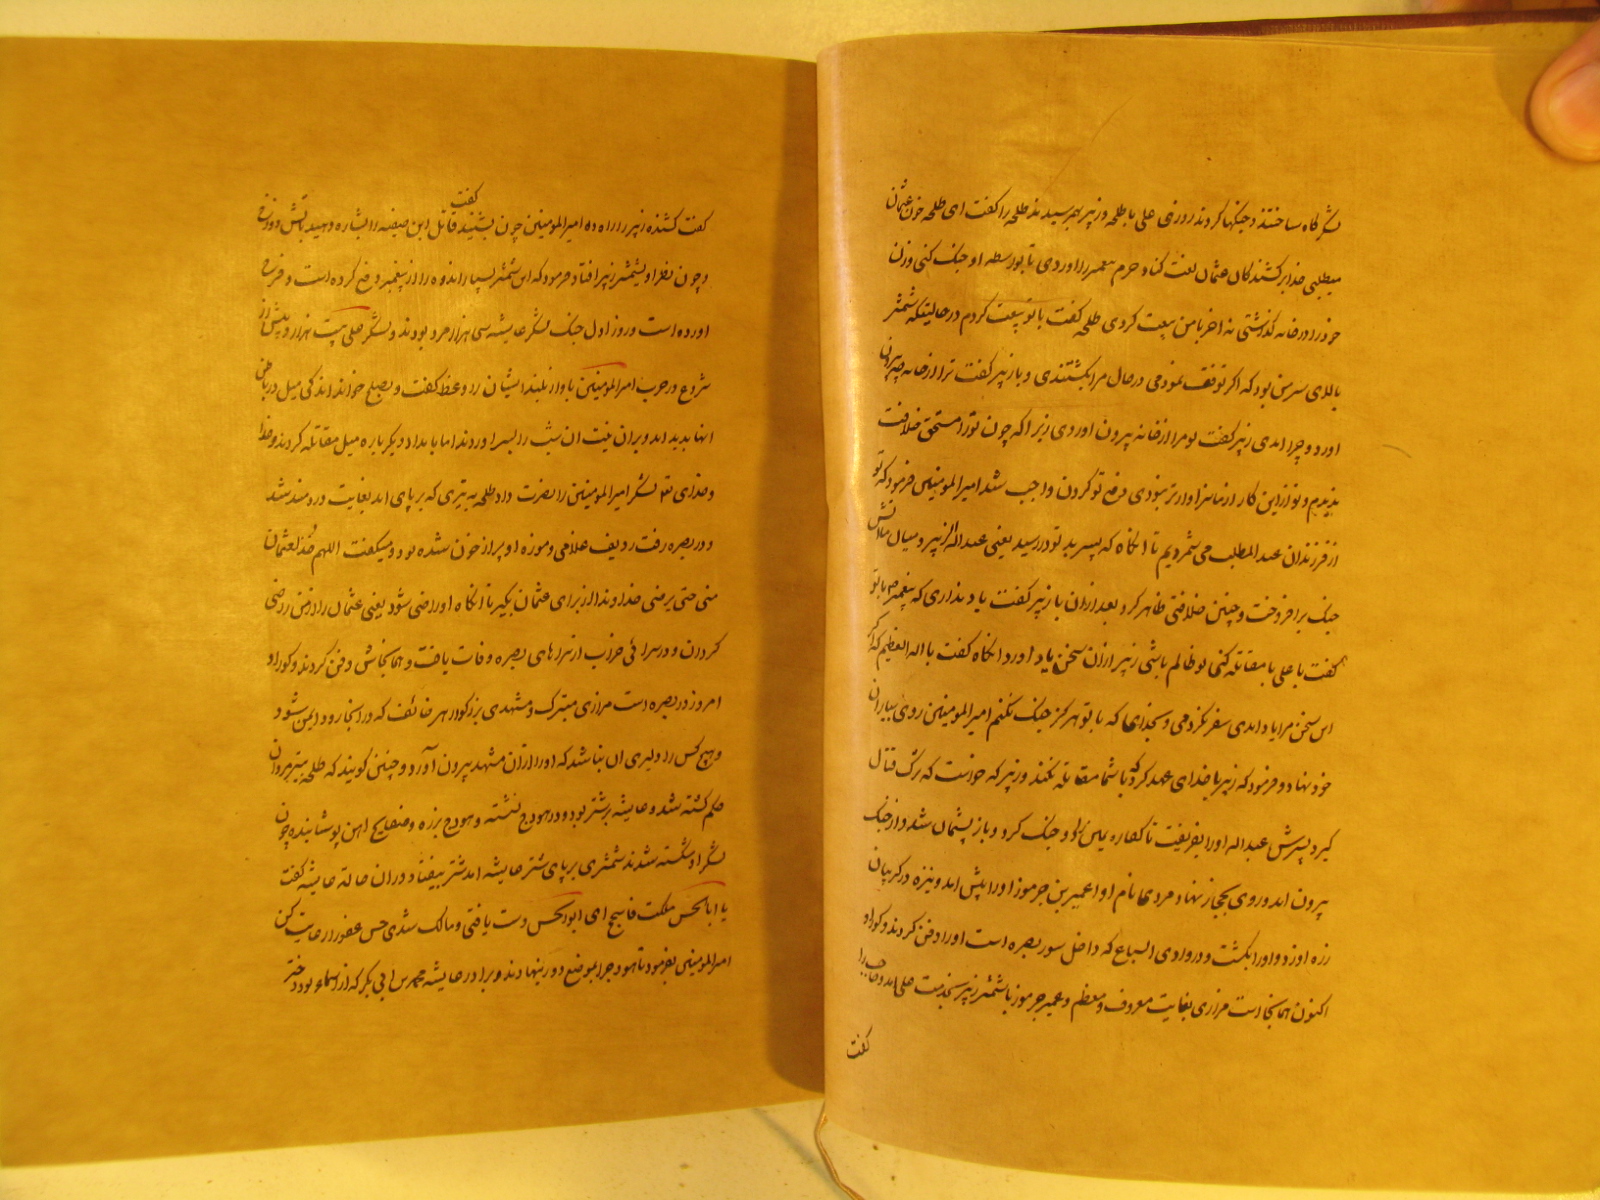 لشکرگاه ساختند و جنکها کردند روزی علی با طلحه و زبیر بهم رسیدند طلحه را کفت ای طلحه خون عثمان
میطلبی خدا بر کشندکان عثمان لعنت کناد و حرم پیغمبر را اوردی تا بواسطه او جنک کنی و زن
خود را در خانه کذاشتی نه اخر با من بیعت کردی طلحه کفت با تو بیعت کردم در حالیتکه شمشیر
بالای سر من بود که اکر توقف نمودمی در حال مرا بکشتندی و با زبیر کفت ترا از خانه چه بیرون
اورد و چرا امدی زبیر کفت تو مرا از خانه بیرون اوردی زیرا که چون تو را مستحق خلافت
ندیدم و تو از این کار از ما سزاوارتر نبودی دفع تو کردن واجب شد امیرالمومنین فرمود که تو
از فرزندان عبدالمطلب می شمردیم تا انکاه که پسر بد تو در رسید یعنی عبدالله الزبیر و میان ما اتش
جنک برافروخت و چنین خلافتی ظاهر کرد بعد از ان با زبیر کفت یاد نداری که پیغمبر با تو
کفت با علی با مقاتله کنی تو ظالم باشی زبیر از ان سخن یاد اورد انکاه کفت بالله العظیم که اکر
این سخن مرا یاد امدی سفر نکردمی و بخدای که با تو هرکز جنک نکنم امیرالمومنین روی بیاران
خود نهاد و فرمود که زبیر با خدای عهد کرد که با شما مقاتله نکند و زبیر که خواست که ترک قتال
کیرد پسرش عبداله او را بفریفت تا کفاره یمین او و جنک کرد و باز پشمان شد و از جنک
بیرون امد و روی بحجاز نهاد مردی نام او عمیر بن جرموز او را پیش امد و نیزه در کریبان
زره او زد و او را بکشت و در وادی السباع که داخل سور بصره است او را دفن کردند و کور او
اکنون همانجا است مزاری بغایت معروف و معظم و عمیر جرموز با شمشیر زبیر بخدمت علی امد و حاجب را
کفت
کفت
کفت کشنده زبیر را راه ده امیرالمومنین چون بشنید قاتل ابن صفیه را بشاره دهید باتش دوزخ
و چون نظر او بشمشیر زبیر افتاد فرمود که این شمشیر بسیار اندوه را از پیغمبر دفع کرده است و فرح
اورده است و روز اول جنک لشکر عایشه سی هزار مرد بودند و لشکر علی بیست هزار و پیش از
شروع در حرب امیرالمومنین باواز بلند ایشان را وعظ کفت و بصلح خواند اندکی میل در باطن
انها بدید امد و بران نیت ان شب را بسر اوردند اما بامداد دیکر باره میل مقاتله کردند و خدا
و خدای تع لشکر امیرالمومنین را نصرت داد و طلحه به تیری که بر پای امد بغایت دردمند شد
و در بصره رفت ردیف غلامی و موزه او پر از خون شده بود و میکفت اللهم خذ لعثمان
منی حتی یرضی خداوندا از برای عثمان بکیر تا انکاه او راضی شود یعنی عثمان را از من راضی
کردان و در سرائی خراب از سراهای بصره وفات یافت و همانجاش دفن کردند و کور او
امروز در بصره است مزاری متبرک و مشهدی بزرکوار هر خائف که در انجا رود ایمن شود
و هیچ کس را دلیری ان نباشد که او را از ان مشهد بیرون آورد و چنین کویند که طلحه به تیر مروان
حکم کشته شد و عایشه بر شتر بود و در هودج نشسته و هودج بزره و صفایح اهن پوشانیده چون
لشکر او شکسته شدند شمشیری بر پای شتر عایشه امد شتر بیفتاد در ان حالة عایشه کفت
یا اباالحسن ملکت فاسجح ای ابوالحسن دست یافتی و مالک شدی حسن عفو را رعایت کن
امیرالمومنین بفرمود تا هودج را بموضع دور بنهادند و برادر عایشه محمد بن ابی بکر که از اسماء بود دختر